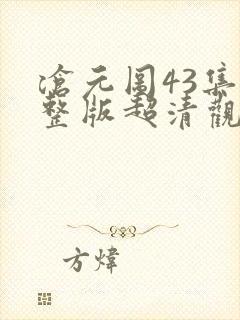 滄元圖43集
整版超清觀
方煒